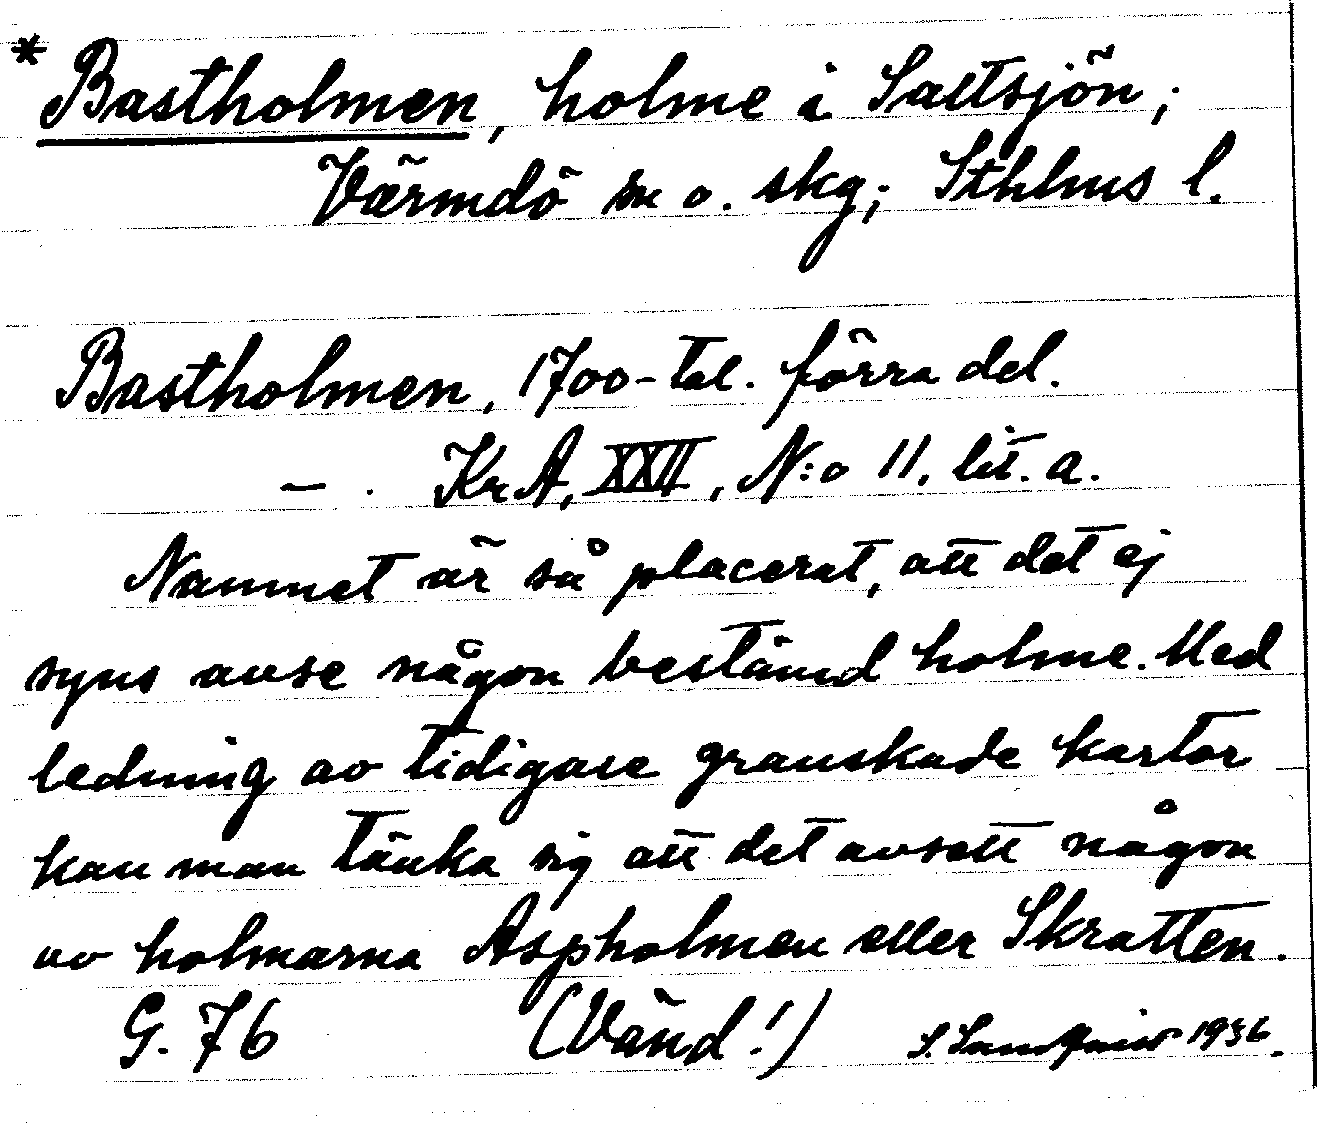 * Bastholmen, holme i Saltsjön;
Värmdö sn o. skg; Sthlms l.
Bastholmen, 1700-tal. förra del.
— . KrA, XXII, N:o 11. lit. a.
Namnet är så placerat, att det ej
syns avse någon bestämd holme. Med
ledning av tidigare granskade kartor
kan man tänka sig att det avsett någon
av holmarna Aspholmen eller Skratten.
G. 76 (Vänd!) S. Sandquist 1936.